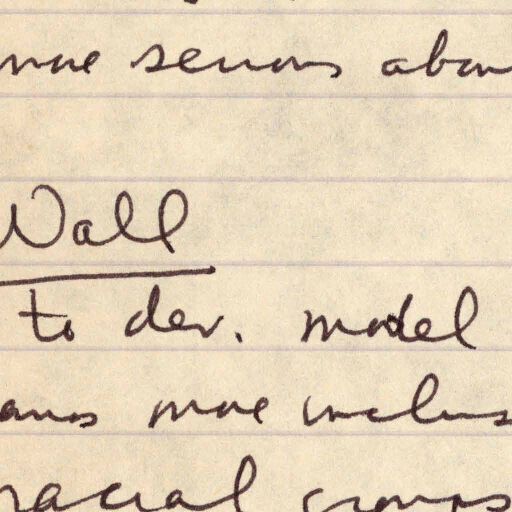 more serious abou
Wall
to dev. model
more inclus
racial groups